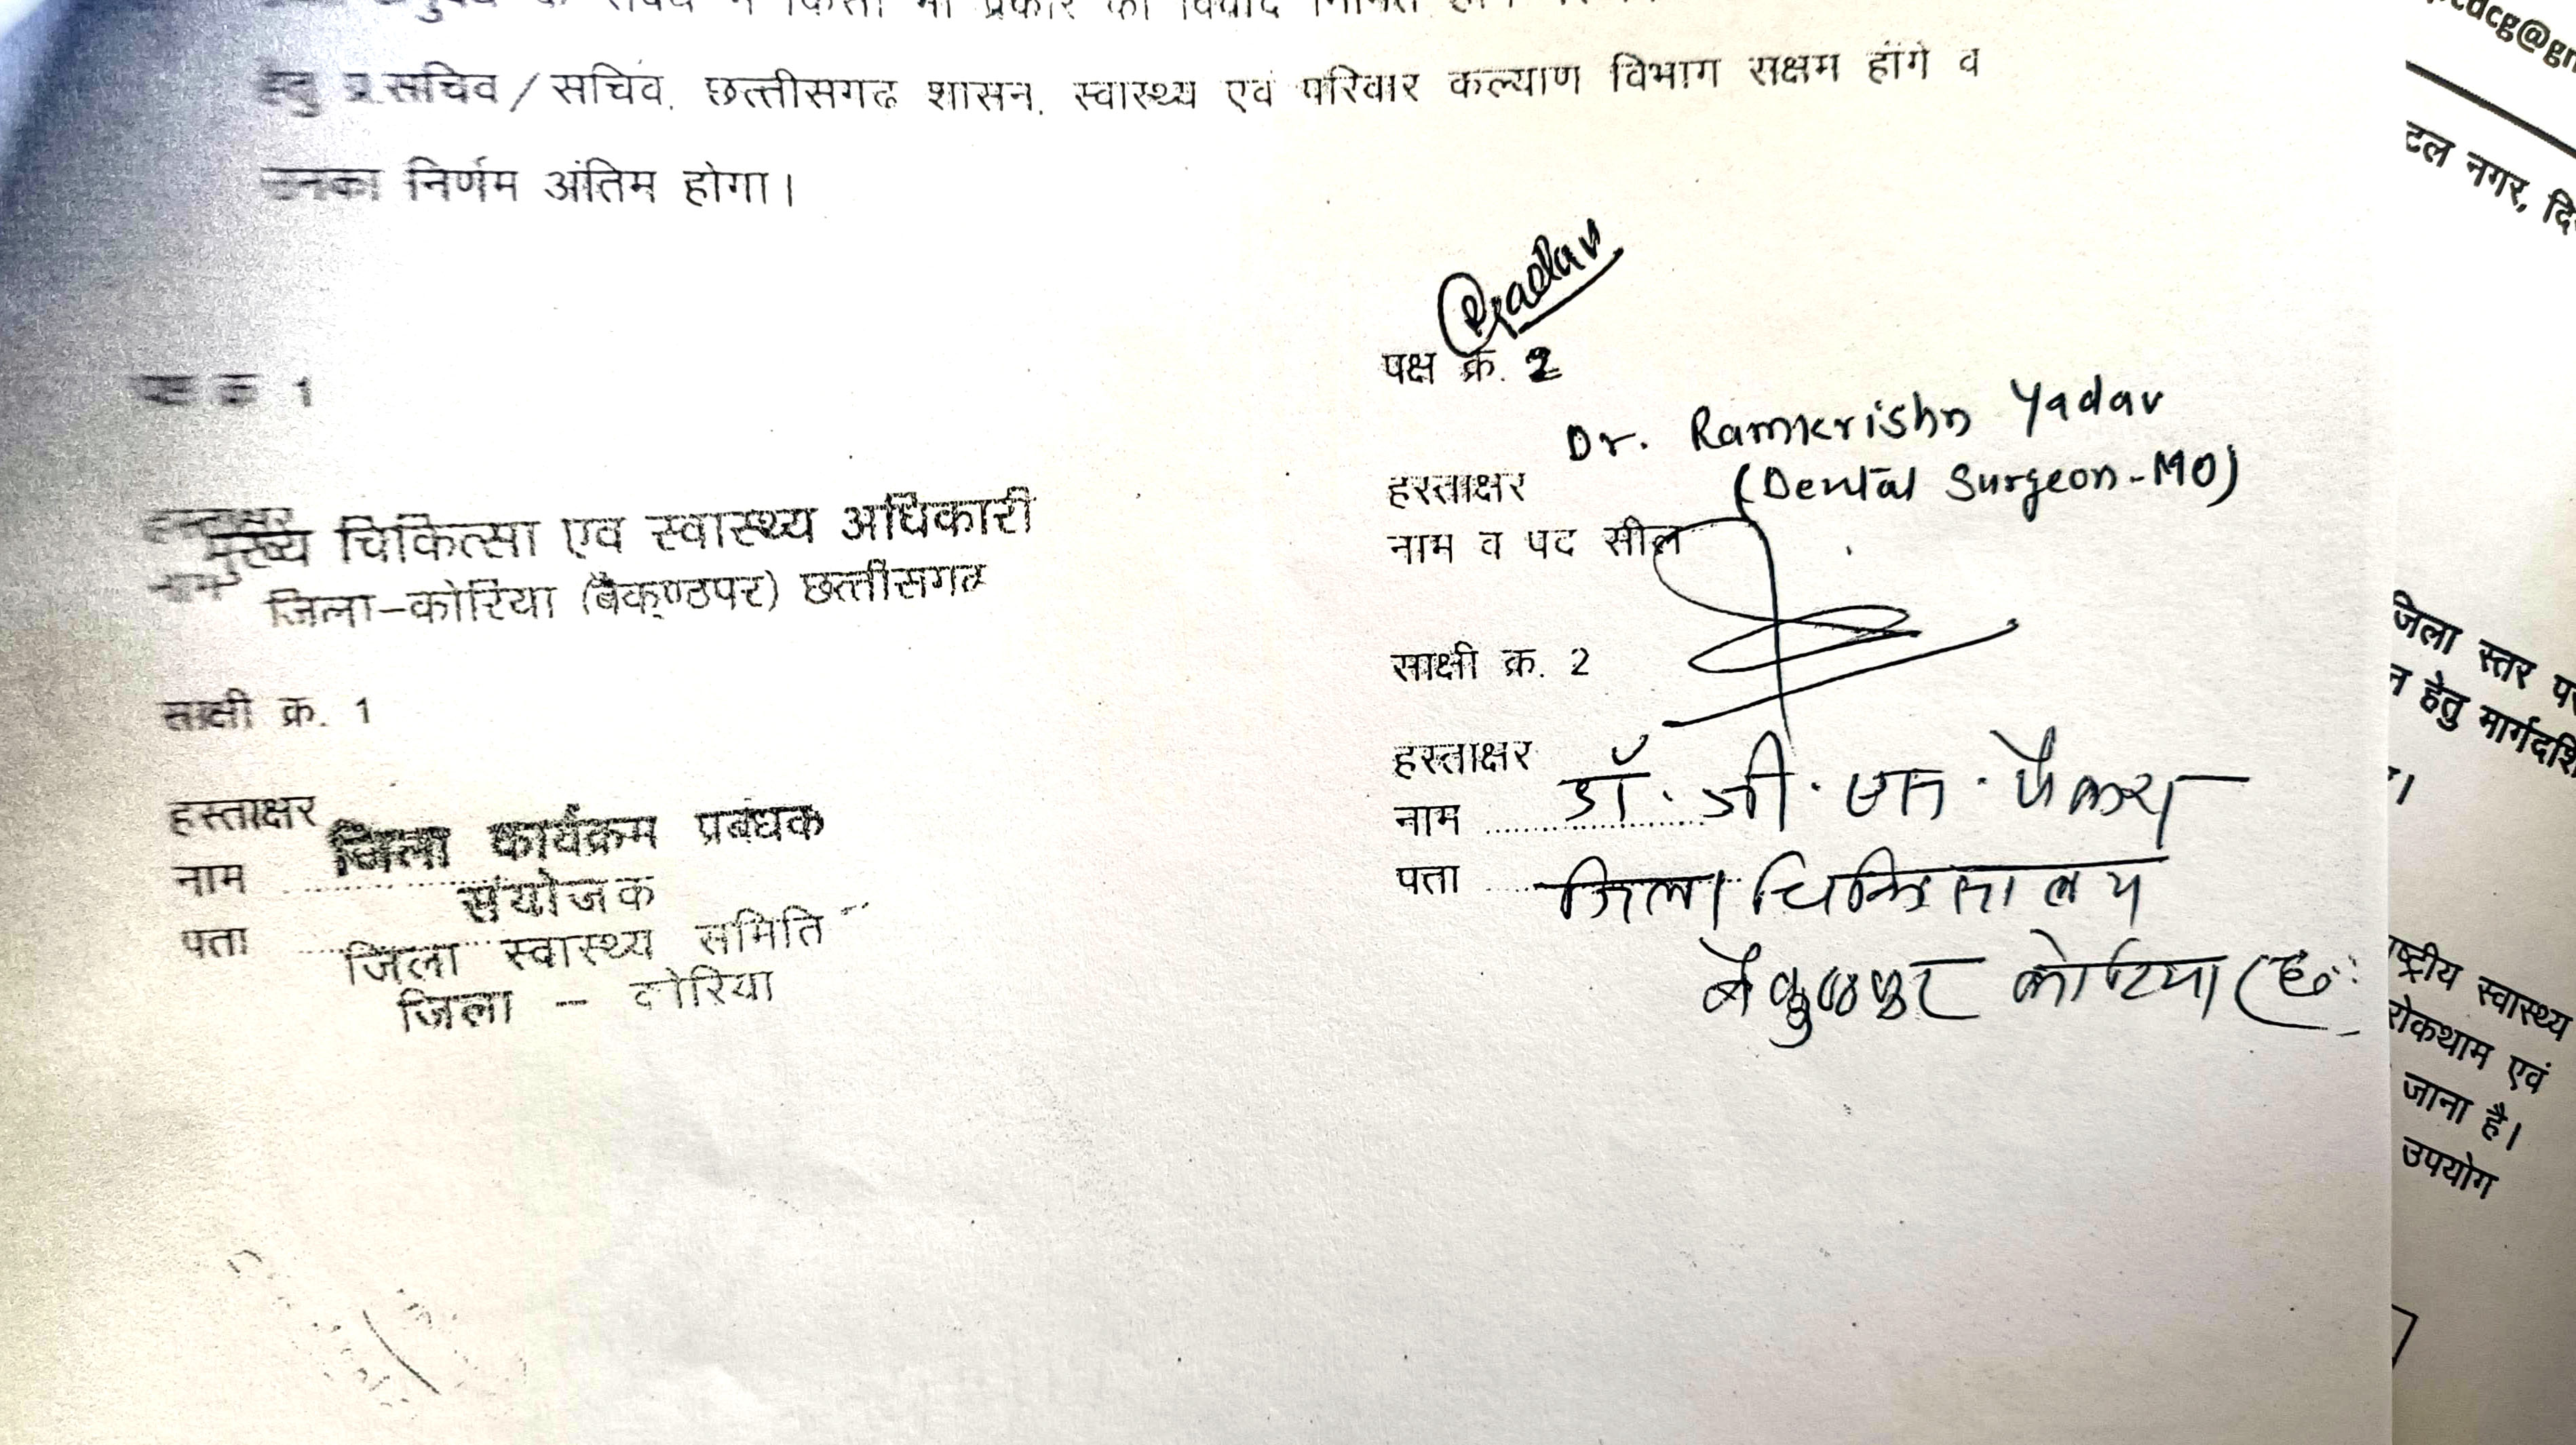 के संबंध में किसी भी प्रकार का विवाद
हेतु प्र.सचिव/सचिव, छत्तीसगढ शासन, स्वास्थ्य एवं परिवार कल्याण विभाग सक्षम होंगे व
उनका निर्णम अंतिम होगा।
Yadav
पक्ष क्र. 1
पक्ष क्र. 2
Dr. Ramkrishn Yadav
(Dental Surgeon-MO)
हस्ताक्षर
मुख्य चिकित्सा एवं स्वास्थ्य अधिकारी
नाम
जिला-कोरिया (बैकुण्ठपुर) छत्तीसगढ
हस्ताक्षर
नाम व पद सील
साक्षी क्र. 1
साक्षी क्र. 2
हस्ताक्षर
जिला कार्यक्रम प्रबंधक
नाम
संयोजक
पता
जिला स्वास्थ्य समिति
जिला - कोरिया
हस्ताक्षर
नाम डॉ. जी. एस. पैकरा
पता जिला चिकित्सालय
बैकुण्ठपुर कोरिया (छ.
टल नगर,
जिला स्तर
हेतु
राष्ट्रीय स्वास्थ्य
रोकथाम एवं
जाना है।
उपयोग